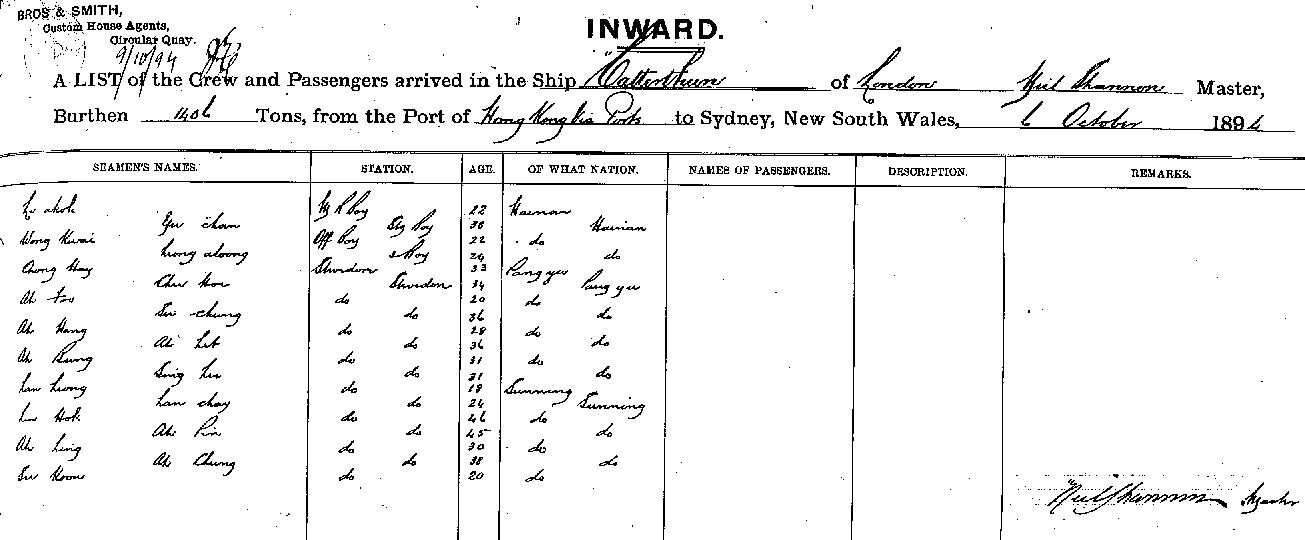 BROS & SMITH,
Custom House Agents,
Circular Quay.
9/10/94
INWARD.
A LIST of the Crew and Passengers arrived in the Ship "Catterthun of London Neil Shannon Master,
Burthen 1406 Tons, from the Port of Hong Kong via Ports to Sydney, New South Wales, 6 October 1894
SEAMEN'S NAMES. STATION. AGE. OF WHAT NATION. NAMES OF PASSENGERS. DESCRIPTION. REMARKS.
Boy 22 Hainan
Yu chan Boy 30 Hainan
Wong Kwai Off Boy 22 do
Leong aloong Boy 24 do
Chong Hay 33 Pang yu
34 Pang yu
Ah do 20 do
chung do 36 do
Ah Hang do 28 do
Ah do 36 do
Ah Kung do 31 do
Sing do 31 do
Lan Leong do 18 Sunning
Lan choy do 24 Sunning
Hok do 46 do
Ah Pin do 45 do
Ah Ling do 30 do
Ah Chung do 38 do
do 20 do
Neil Shannon Master